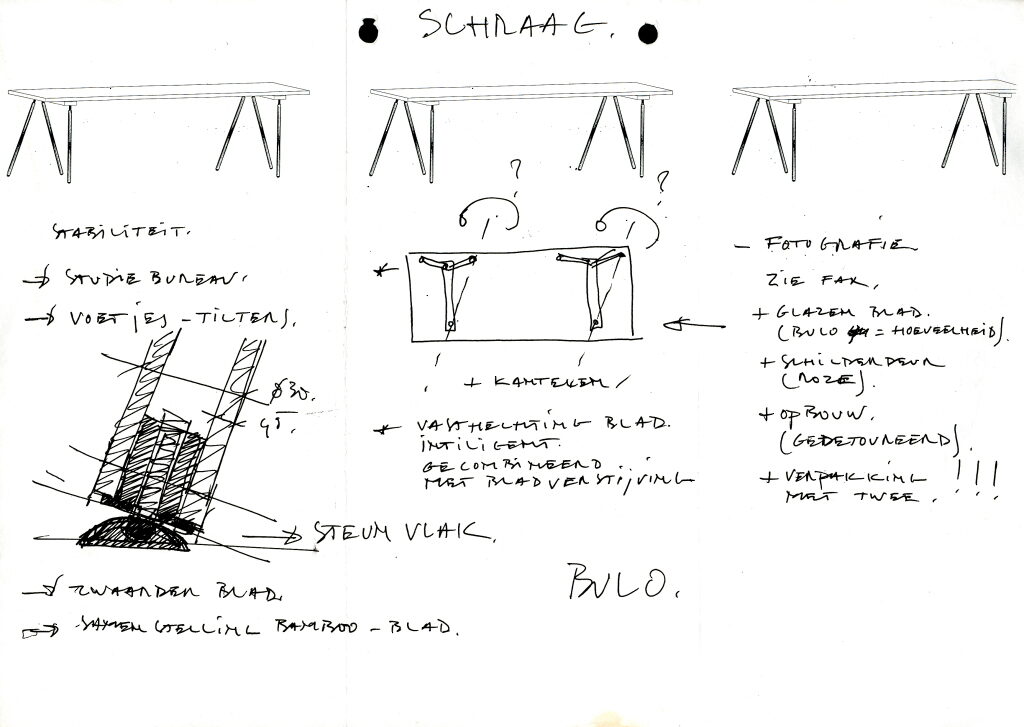 SCHRAAG.
STABILITEIT.
→ STUDIE BUREAU.
→ VOETJES - TILTERS.
ø 30.
45.
→ STEUN VLAK.
→ ZWAARDER BLAD.
→ SAMENSTELLING BAMBOO - BLAD.
?
?
*
+ KANTELEN /
* VASTHECHTING BLAD.
INTILIGENT.
GECOMBINEERD
MET BLADVERSTIJVING
BULO.
- FOTOGRAFIE
ZIE FAX.
+ GLAZEN BLAD.
(BULO = HOEVEELHEID).
+ SCHILDERDEUR
(ROZE).
+ OPBOUW.
(GEDETOUREERD).
+ VERPAKKING !!!
MET TWEE.